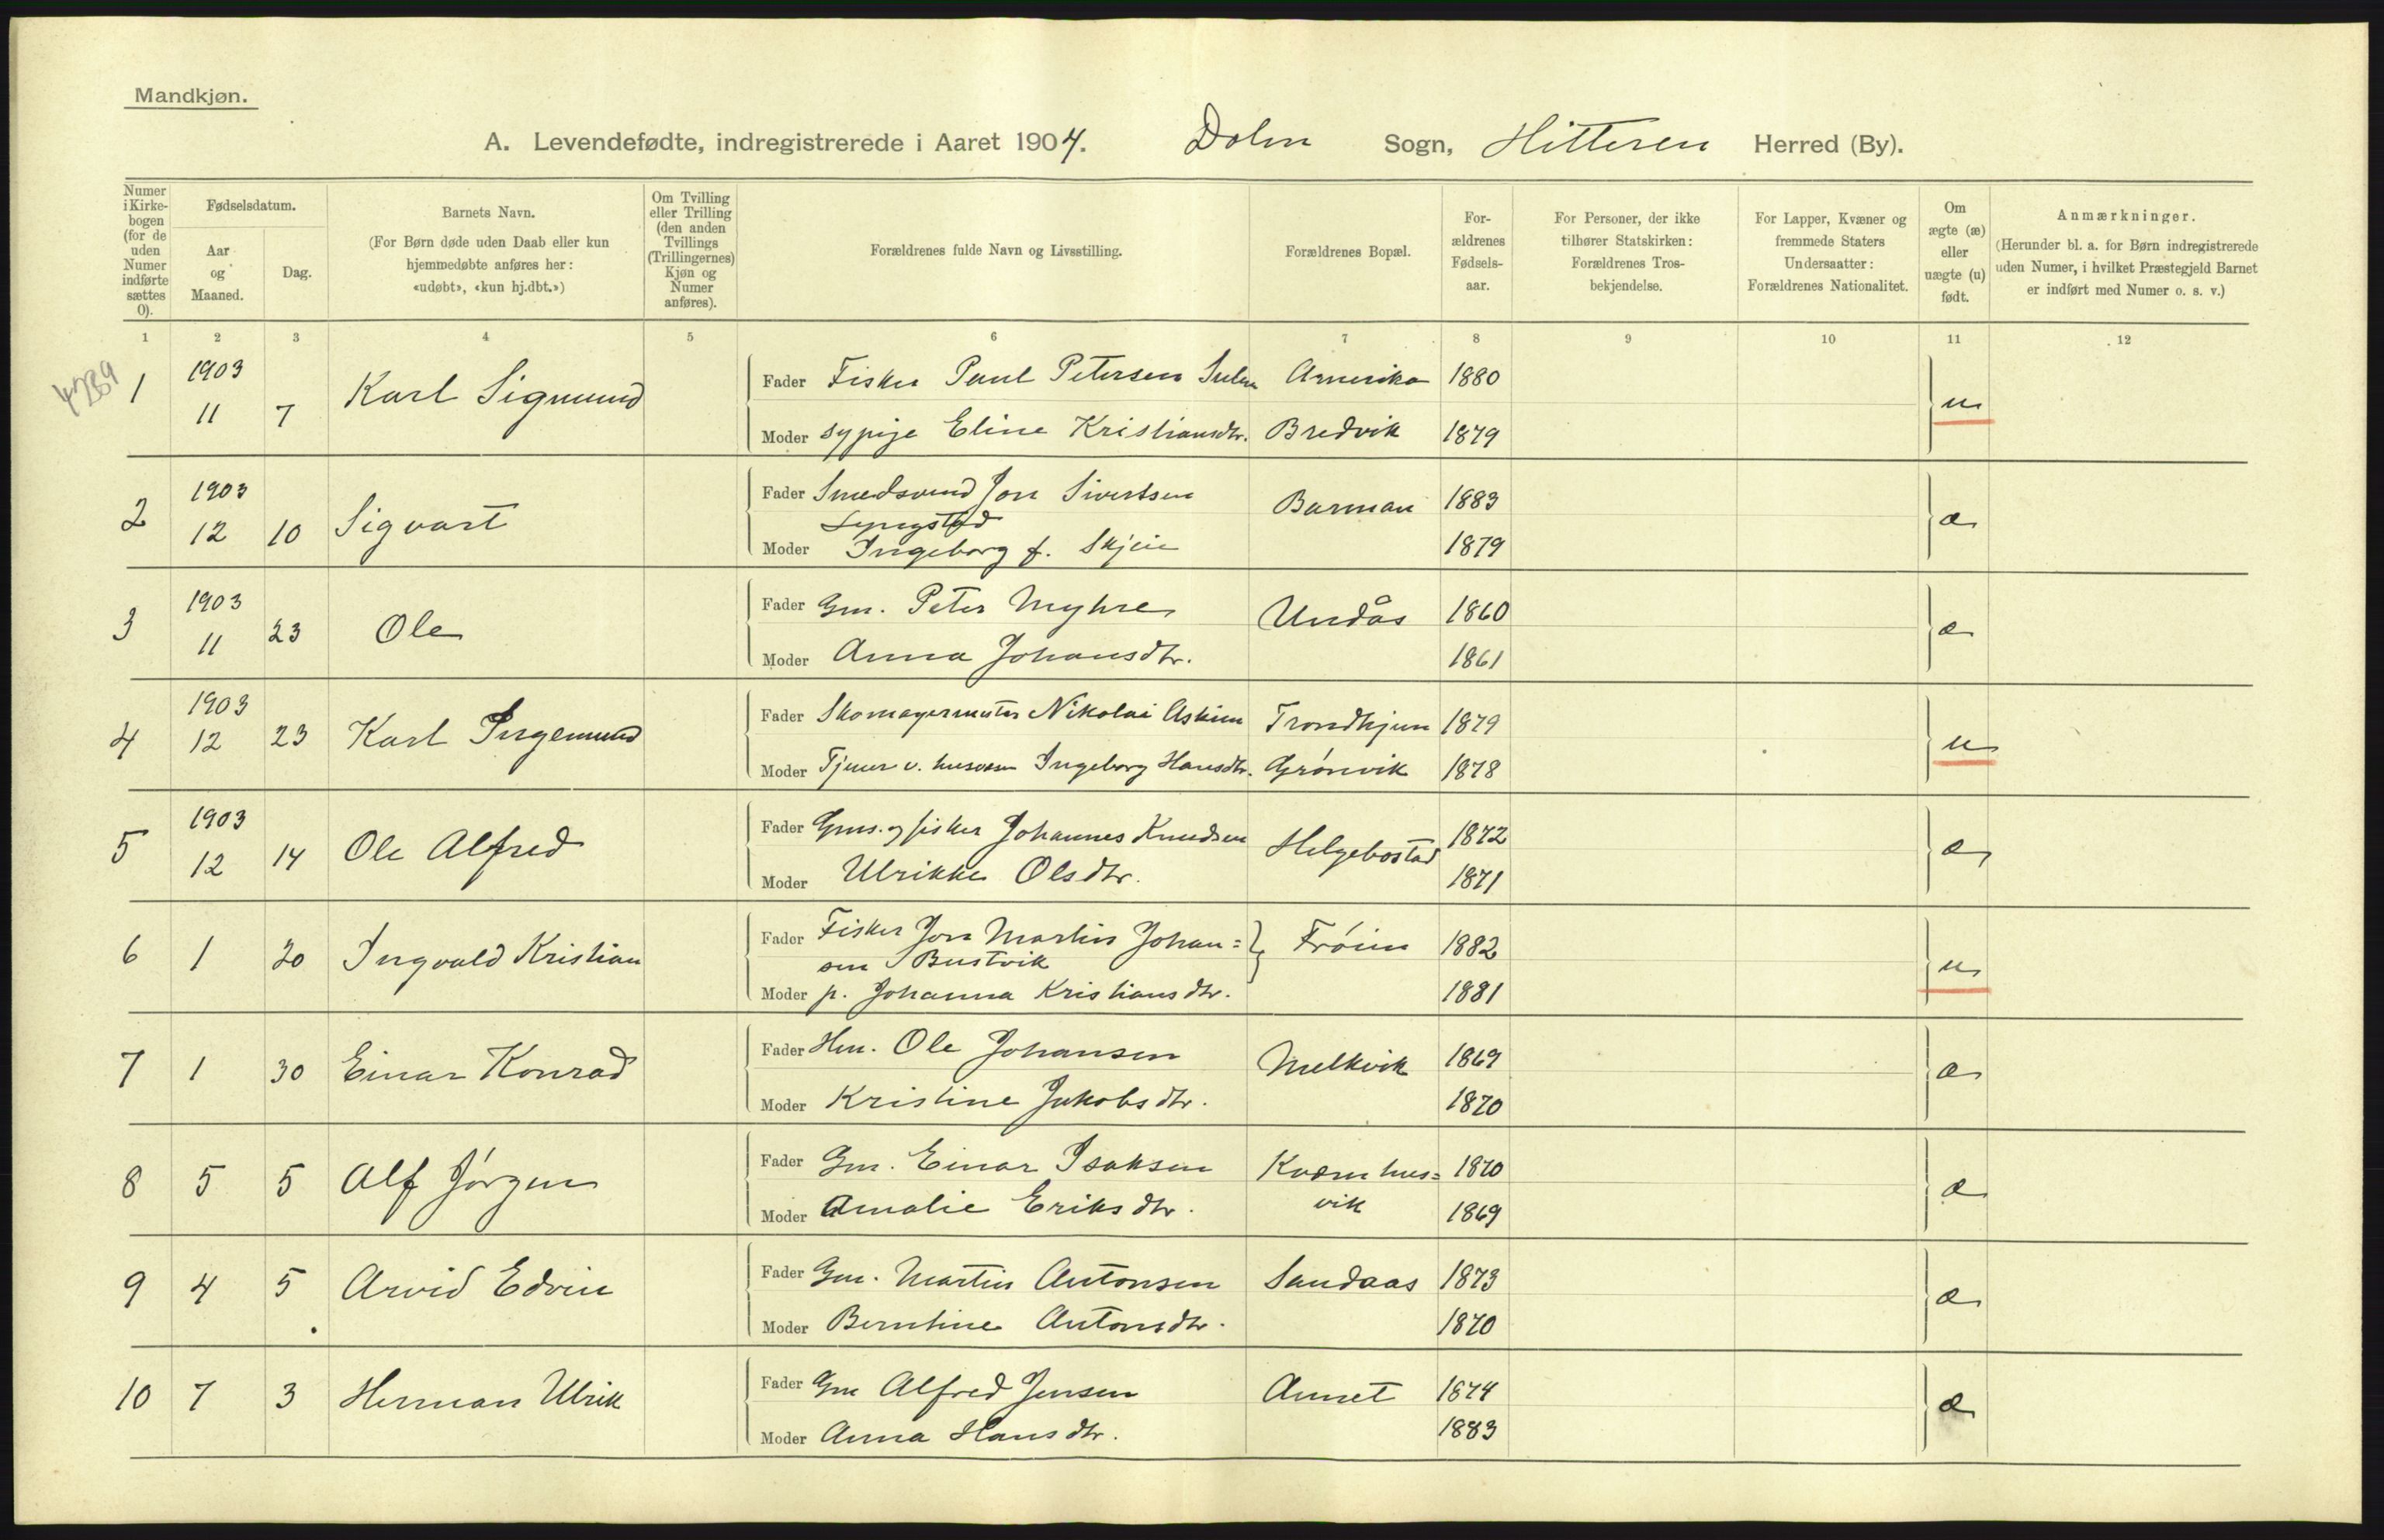 Mandkjøn.
A. Levendefødte, indregistrerede i Aaret 1904. Dolm Sogn, Hitteren Herred (By).
Numer i Kirke-bogen (for de uden Numer indførte sættes 0).
Fødselsdatum.
Aar og Maaned.
Dag.
Barnets Navn.
(For Børn døde uden Daab eller kun hjemmedøbte anføres her: «udøbt», «kun hj.dbt.»)
Om Tvilling eller Trilling (den anden Tvillings (Trillingernes) Kjøn og Numer anføres).
Forældrenes fulde Navn og Livsstilling.
Forældrenes Bopæl.
For-ældrenes Fødsels-aar.
For Personer, der ikke tilhører Statskirken: Forældrenes Tros-bekjendelse.
For Lapper, Kvæner og fremmede Staters Undersaatter: Forældrenes Nationalitet.
Om ægte (æ) eller uægte (u) født.
Anmærkninger.
(Herunder bl. a. for Børn indregistrerede uden Numer, i hvilket Præstegjeld Barnet er indført med Numer o. s. v.)
1 2 3 4 5 6 7 8 9 10 11 12
1 1903 11 7 Karl Sigmund
Fader Fisker Paul Petersen Amerika 1880
u
Moder sypige Eline Kristiansdtr. Bredvik 1879
2 1903 12 10 Sigvart
Fader Smedsvend Jon Sivertsen Barman 1883
Lyngstad
æ
Moder Ingeborg f. Skjeie 1879
3 1903 11 23 Ole
Fader Gm. Peter Myhre Undås 1860
æ
Moder Anna Johansdtr. 1861
4 1903 12 23 Karl Ingemund
Fader Skomagermester Nikolai Askim Trondhjem 1879
u
Moder Tjener v. husvæsen Ingeborg Hansdtr. Grönvik 1878
5 1903 12 14 Ole Alfred
Fader Gms. og fisker Johannes Knudsen Helgebostad 1872
æ
Moder Ulrikke Olsdtr. 1871
6 1 20 Ingvald Kristian
Fader Fisker Jon Martin Johan= Fröien 1882
sen Bustvik
u
Moder p. Johanna Kristiansdtr. 1881
7 1 30 Einar Konrad
Fader Hm. Ole Johansen Melkvik 1869
æ
Moder Kristine Jakobsdtr. 1870
8 5 5 Alf Jörgen
Fader Gm. Einar Isaksen Kværnhus= 1870
vik
æ
Moder Amalie Eriksdtr. 1869
9 4 5 Arvid Edvin
Fader Gm. Martin Antonsen Sandaas 1873
æ
Moder Berntine Antonsdtr. 1870
10 7 3 Herman Ulrik
Fader Gm Alfred Jensen Aunet 1874
æ
Moder Anna Hansdtr. 1883